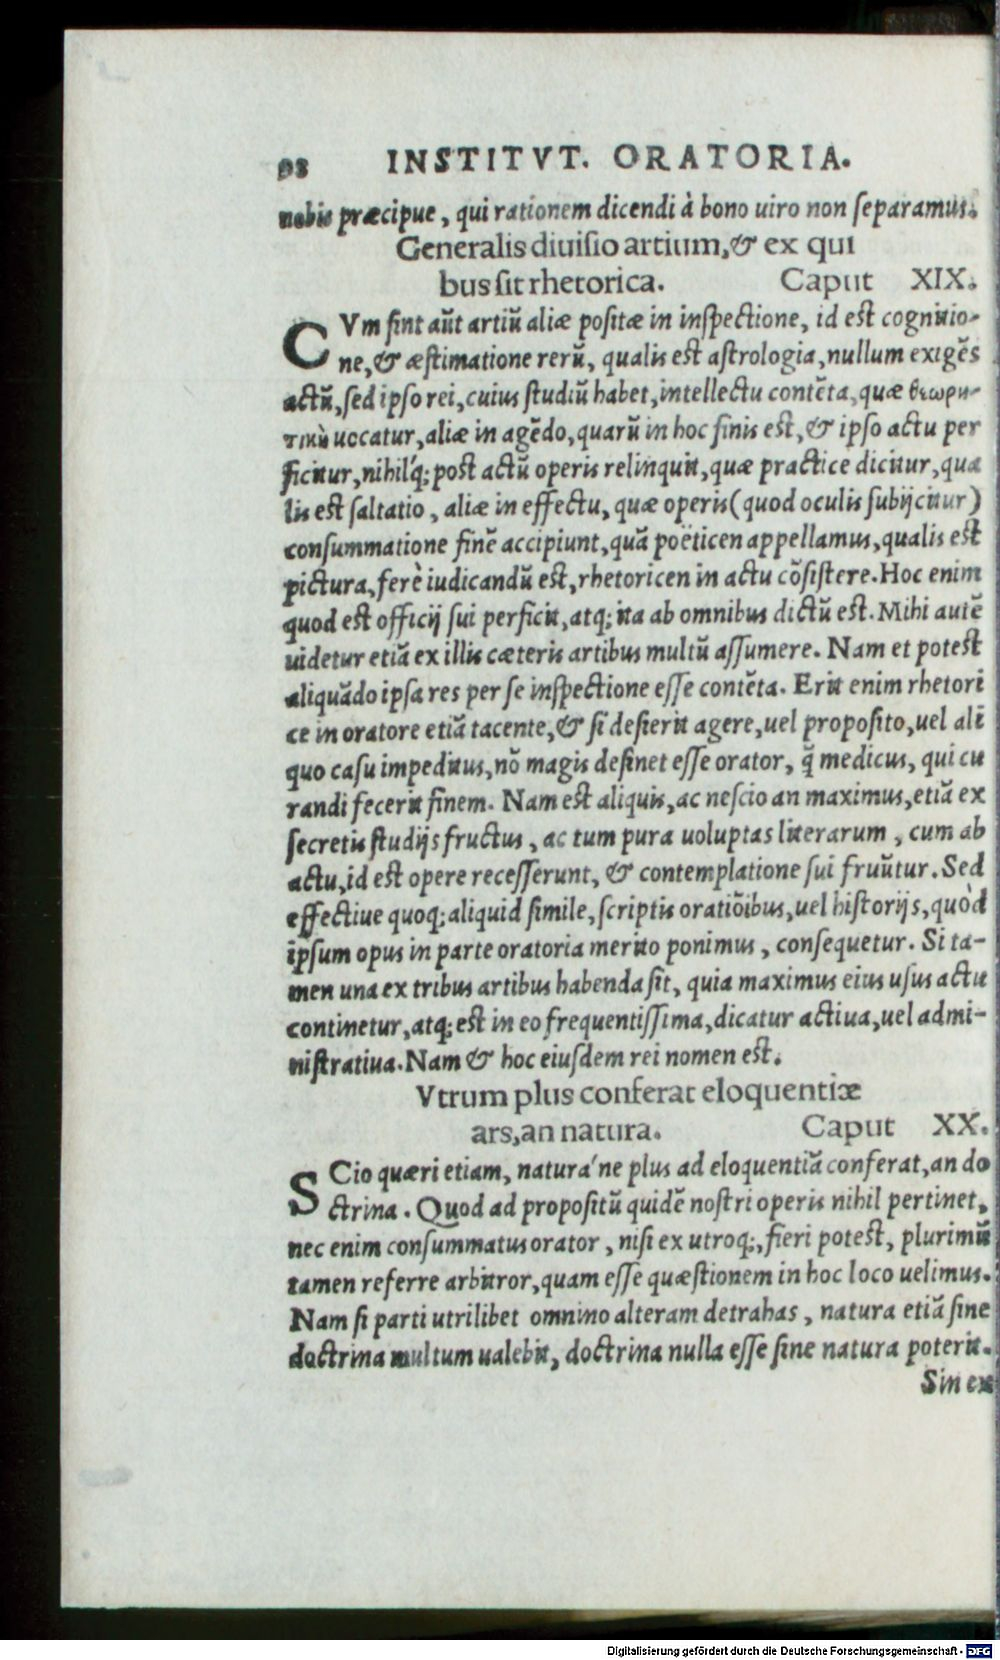 98 INSTITVT. ORATORIA.
nobis præcipue, qui rationem dicendi à bono uiro non ſeparamus.
Generalis diuiſio artium, & ex qui
bus ſit rhetorica. Caput XIX.
CVm ſint aũt artiũ aliæ poſitæ in inſpectione, id eſt cognitio-
ne, & æſtimatione rerũ, qualis eſt aſtrologia, nullum exigẽs
actũ, ſed ipſo rei, cuius ſtudiũ habet, intellectu contẽta, quæ θεωρη-
τικὴ uocatur, aliæ in agẽdo, quarũ in hoc finis eſt, & ipſo actu per
ficitur, nihilq́; poſt actũ operis relinquit, quæ practice dicitur, qua
lis eſt ſaltatio, aliæ in effectu, quæ operis (quod oculis ſubijcitur)
conſummatione finẽ accipiunt, quã poëticen appellamus, qualis eſt
pictura, ferè iudicandũ eſt, rhetoricen in actu cõſiſtere. Hoc enim
quod eſt officij ſui perficit, atq; ita ab omnibus dictũ eſt. Mihi autẽ
uidetur etiã ex illis cæteris artibus multũ aſſumere. Nam et poteſt
aliquãdo ipſa res per ſe inſpectione eſſe contẽta. Erit enim rhetori
ce in oratore etiã tacente, & ſi deſierit agere, uel propoſito, uel ali
quo caſu impeditus, nõ magis deſinet eſſe orator, q̃ medicus, qui cu
randi fecerit finem. Nam eſt aliquis, ac neſcio an maximus, etiã ex
ſecretis ſtudijs fructus, ac tum pura uoluptas literarum, cum ab
actu, id eſt opere receſſerunt, & contemplatione ſui fruũtur. Sed
effectiue quoq; aliquid ſimile, ſcriptis oratiõibus, uel hiſtorijs, quòd
ipſum opus in parte oratoria merito ponimus, conſequetur. Si ta-
men una ex tribus artibus habenda ſit, quia maximus eius uſus actu
continetur, atq; eſt in eo frequentiſſima, dicatur actiua, uel admi-
niſtratiua. Nam & hoc eiuſdem rei nomen eſt.
Vtrum plus conferat eloquentiæ
ars, an natura. Caput XX.
SCio quæri etiam, natura'ne plus ad eloquentiã conferat, an do
ctrina. Quod ad propoſitũ quidẽ noſtri operis nihil pertinet,
nec enim conſummatus orator, niſi ex utroq;, fieri poteſt, plurimũ
tamen referre arbitror, quam eſſe quæſtionem in hoc loco uelimus.
Nam ſi parti utrilibet omnino alteram detrahas, natura etiã ſine
doctrina multum ualebit, doctrina nulla eſſe ſine natura poterit.
Sin ex
Digitalisierung gefördert durch die Deutsche Forschungsgemeinschaft - DFG